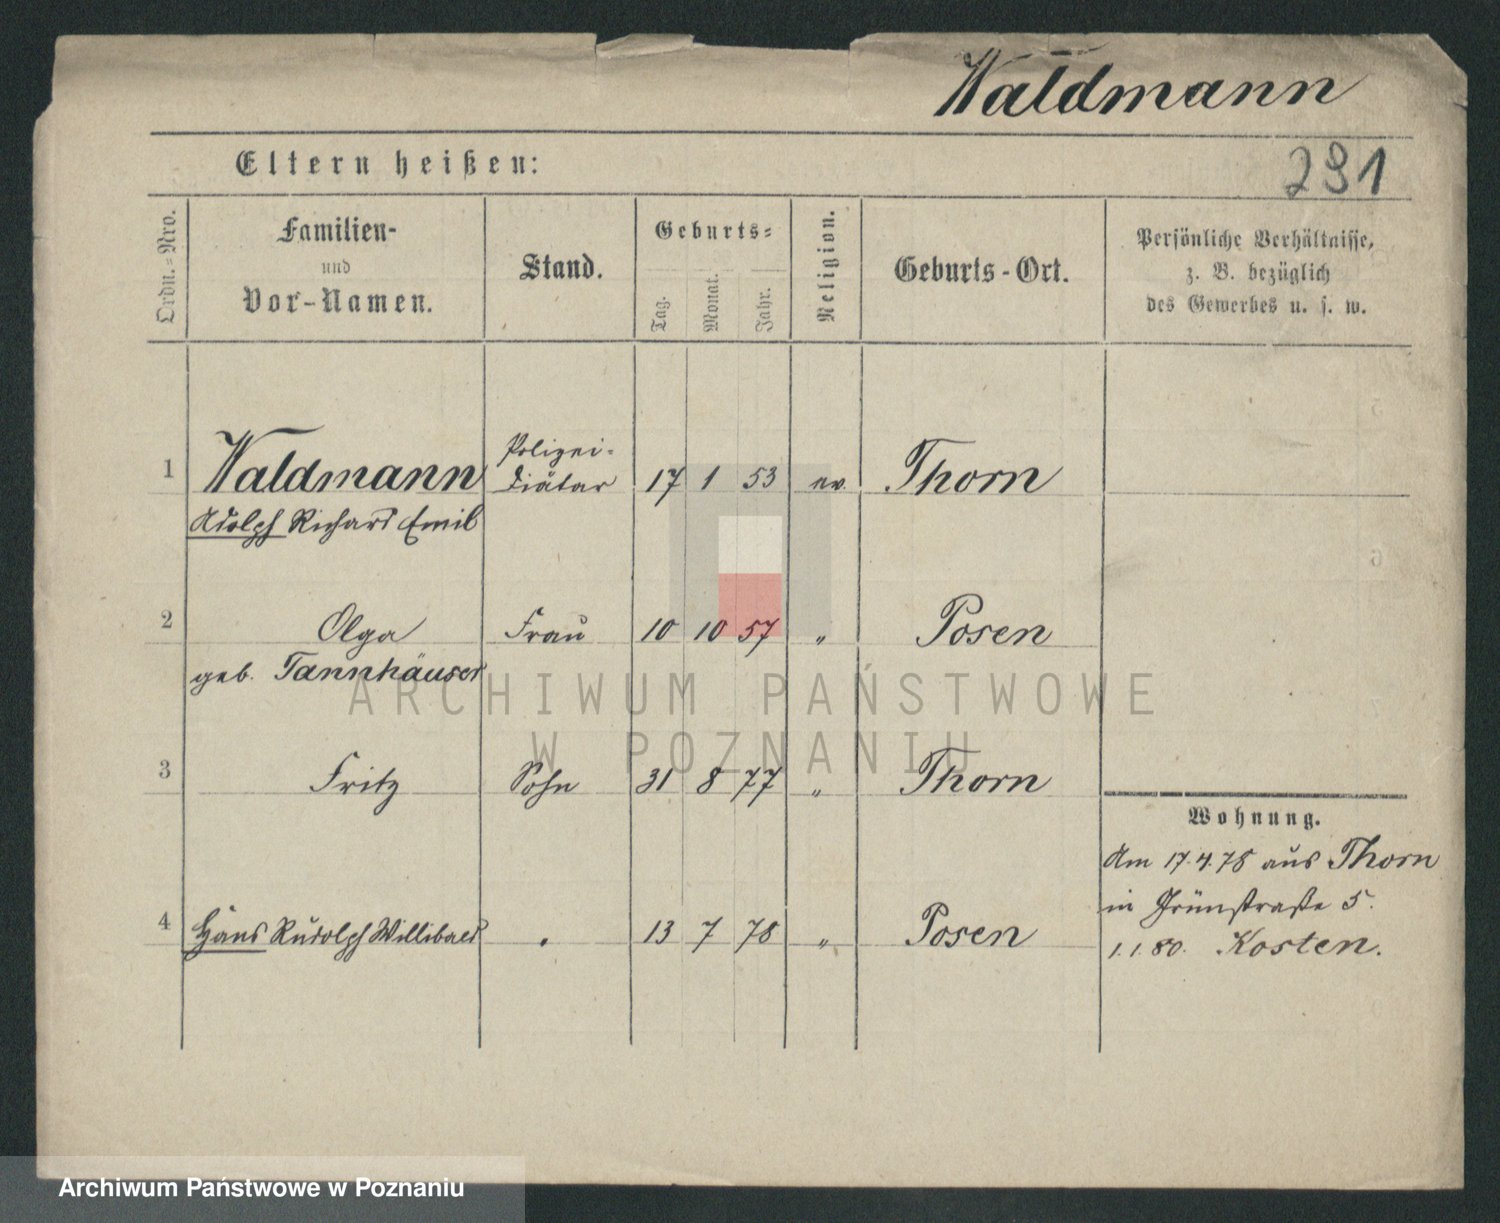 Waldmann
291
Eltern heißen:
Ordn.=Nro.
Familien-
und
Vor-Namen.
Stand.
Geburts=
Tag.
Monat.
Jahr.
Religion.
Geburts-Ort.
Persönliche Verhältnisse,
z. B. bezüglich
des Gewerbes u. s. w.
1 Waldmann Polizei- Diätar 17 1 53 ev. Thorn
Adolph Richard Emil
2 Olga Frau 10 10 57 " Posen
geb. Tannhäuser
ARCHIWUM PAŃSTWOWE
W POZNANIU
3 Fritz Sohn 31 8 77 " Thorn
Wohnung.
Am 17.4.78 aus Thorn
in Grünstraße 5.
4 Hans Rudolph Willibald " 13 7 78 " Posen
1.1.80. Kosten.
Archiwum Państwowe w Poznaniu